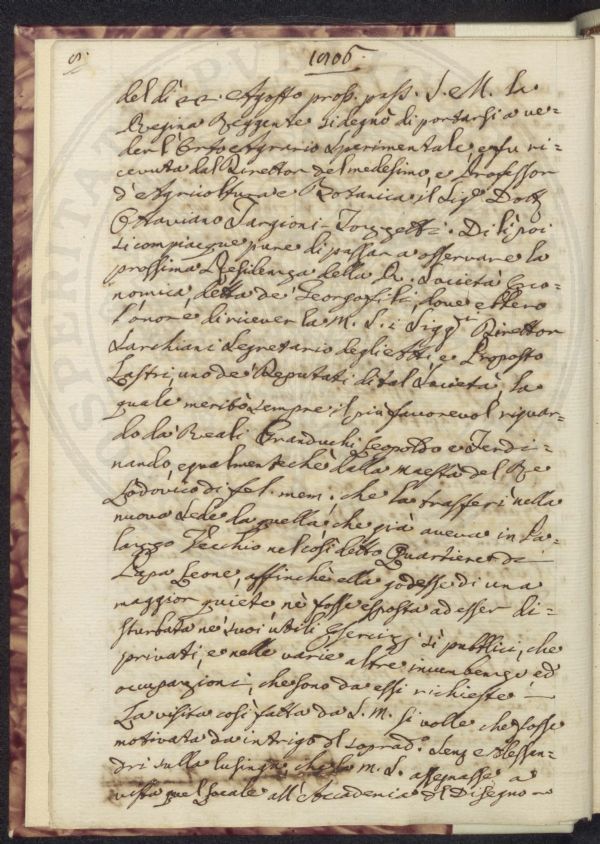 8.
1806.
del dì 22. Agosto pross. pass. S. M. la
Regina Reggente si degnò di portarsi a ve=
der l'Orto Agrario sperimentale, e fu ri=
cevuta dal Director del medesimo, e Professor
d'Agricoltura e Botanica il Sig.e Dott.
Ottaviano Targioni-Tozzetti. Di lì poi
si compiacque pure di passar a osservare la
prossima Residenza della R. Società Eco=
nomica, detta de' Georgofili, dove ebbero
l'onore di ricever la M. S. i Sigg.ri Director
Sarchiani Segretario degli Atti, e Proposto
Lastri, uno de' Deputati di tal Società, la
quale meritò sempre il più favorevol riguar=
do da' Reali Granduchi Leopoldo e Ferdi=
nando, egualmente che dalla maestà del Re
Lodovico di fel. mem., che la trasferì nella
nuova sede da quella, che già aveva in Pa=
lazzo Vecchio nel così detto Quartiere di
Papa Leone, affinchè ella godesse di una
maggior quiete, nè fosse esposta ad esser di=
sturbata ne' suoi utili esercizj sì pubblici, che
privati, e nelle varie altre incumbenze ed
occupazioni, che sono da essi richieste.
La visita così fatta da S. M. si volle che fosse
motivata da intrigo del soprad. e Alessan=
dri sulla lusinga, che la M. S. assegnasse a
vista quel locale all'Accademia del Disegno